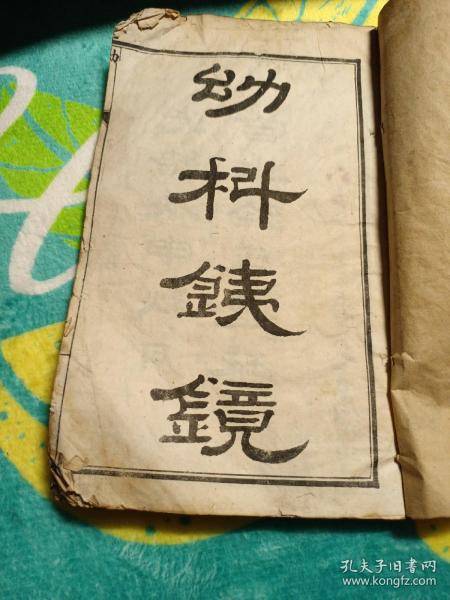 幼科銕镜
孔夫子旧书网
www.kongfz.com